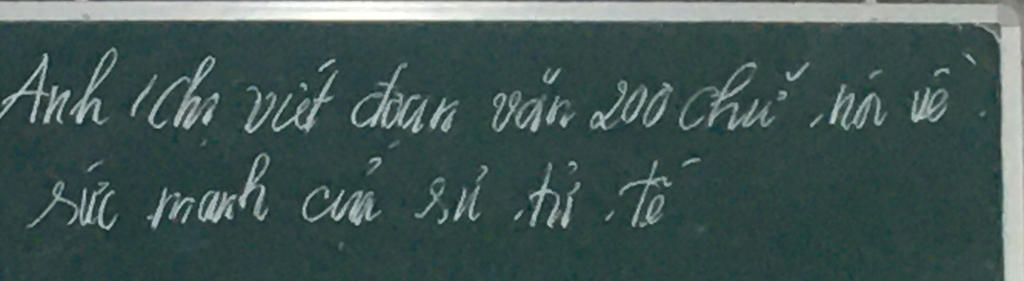 Anh / Chị viết đoạn văn 200 chữ nói về
sức mạnh của sự tử tế